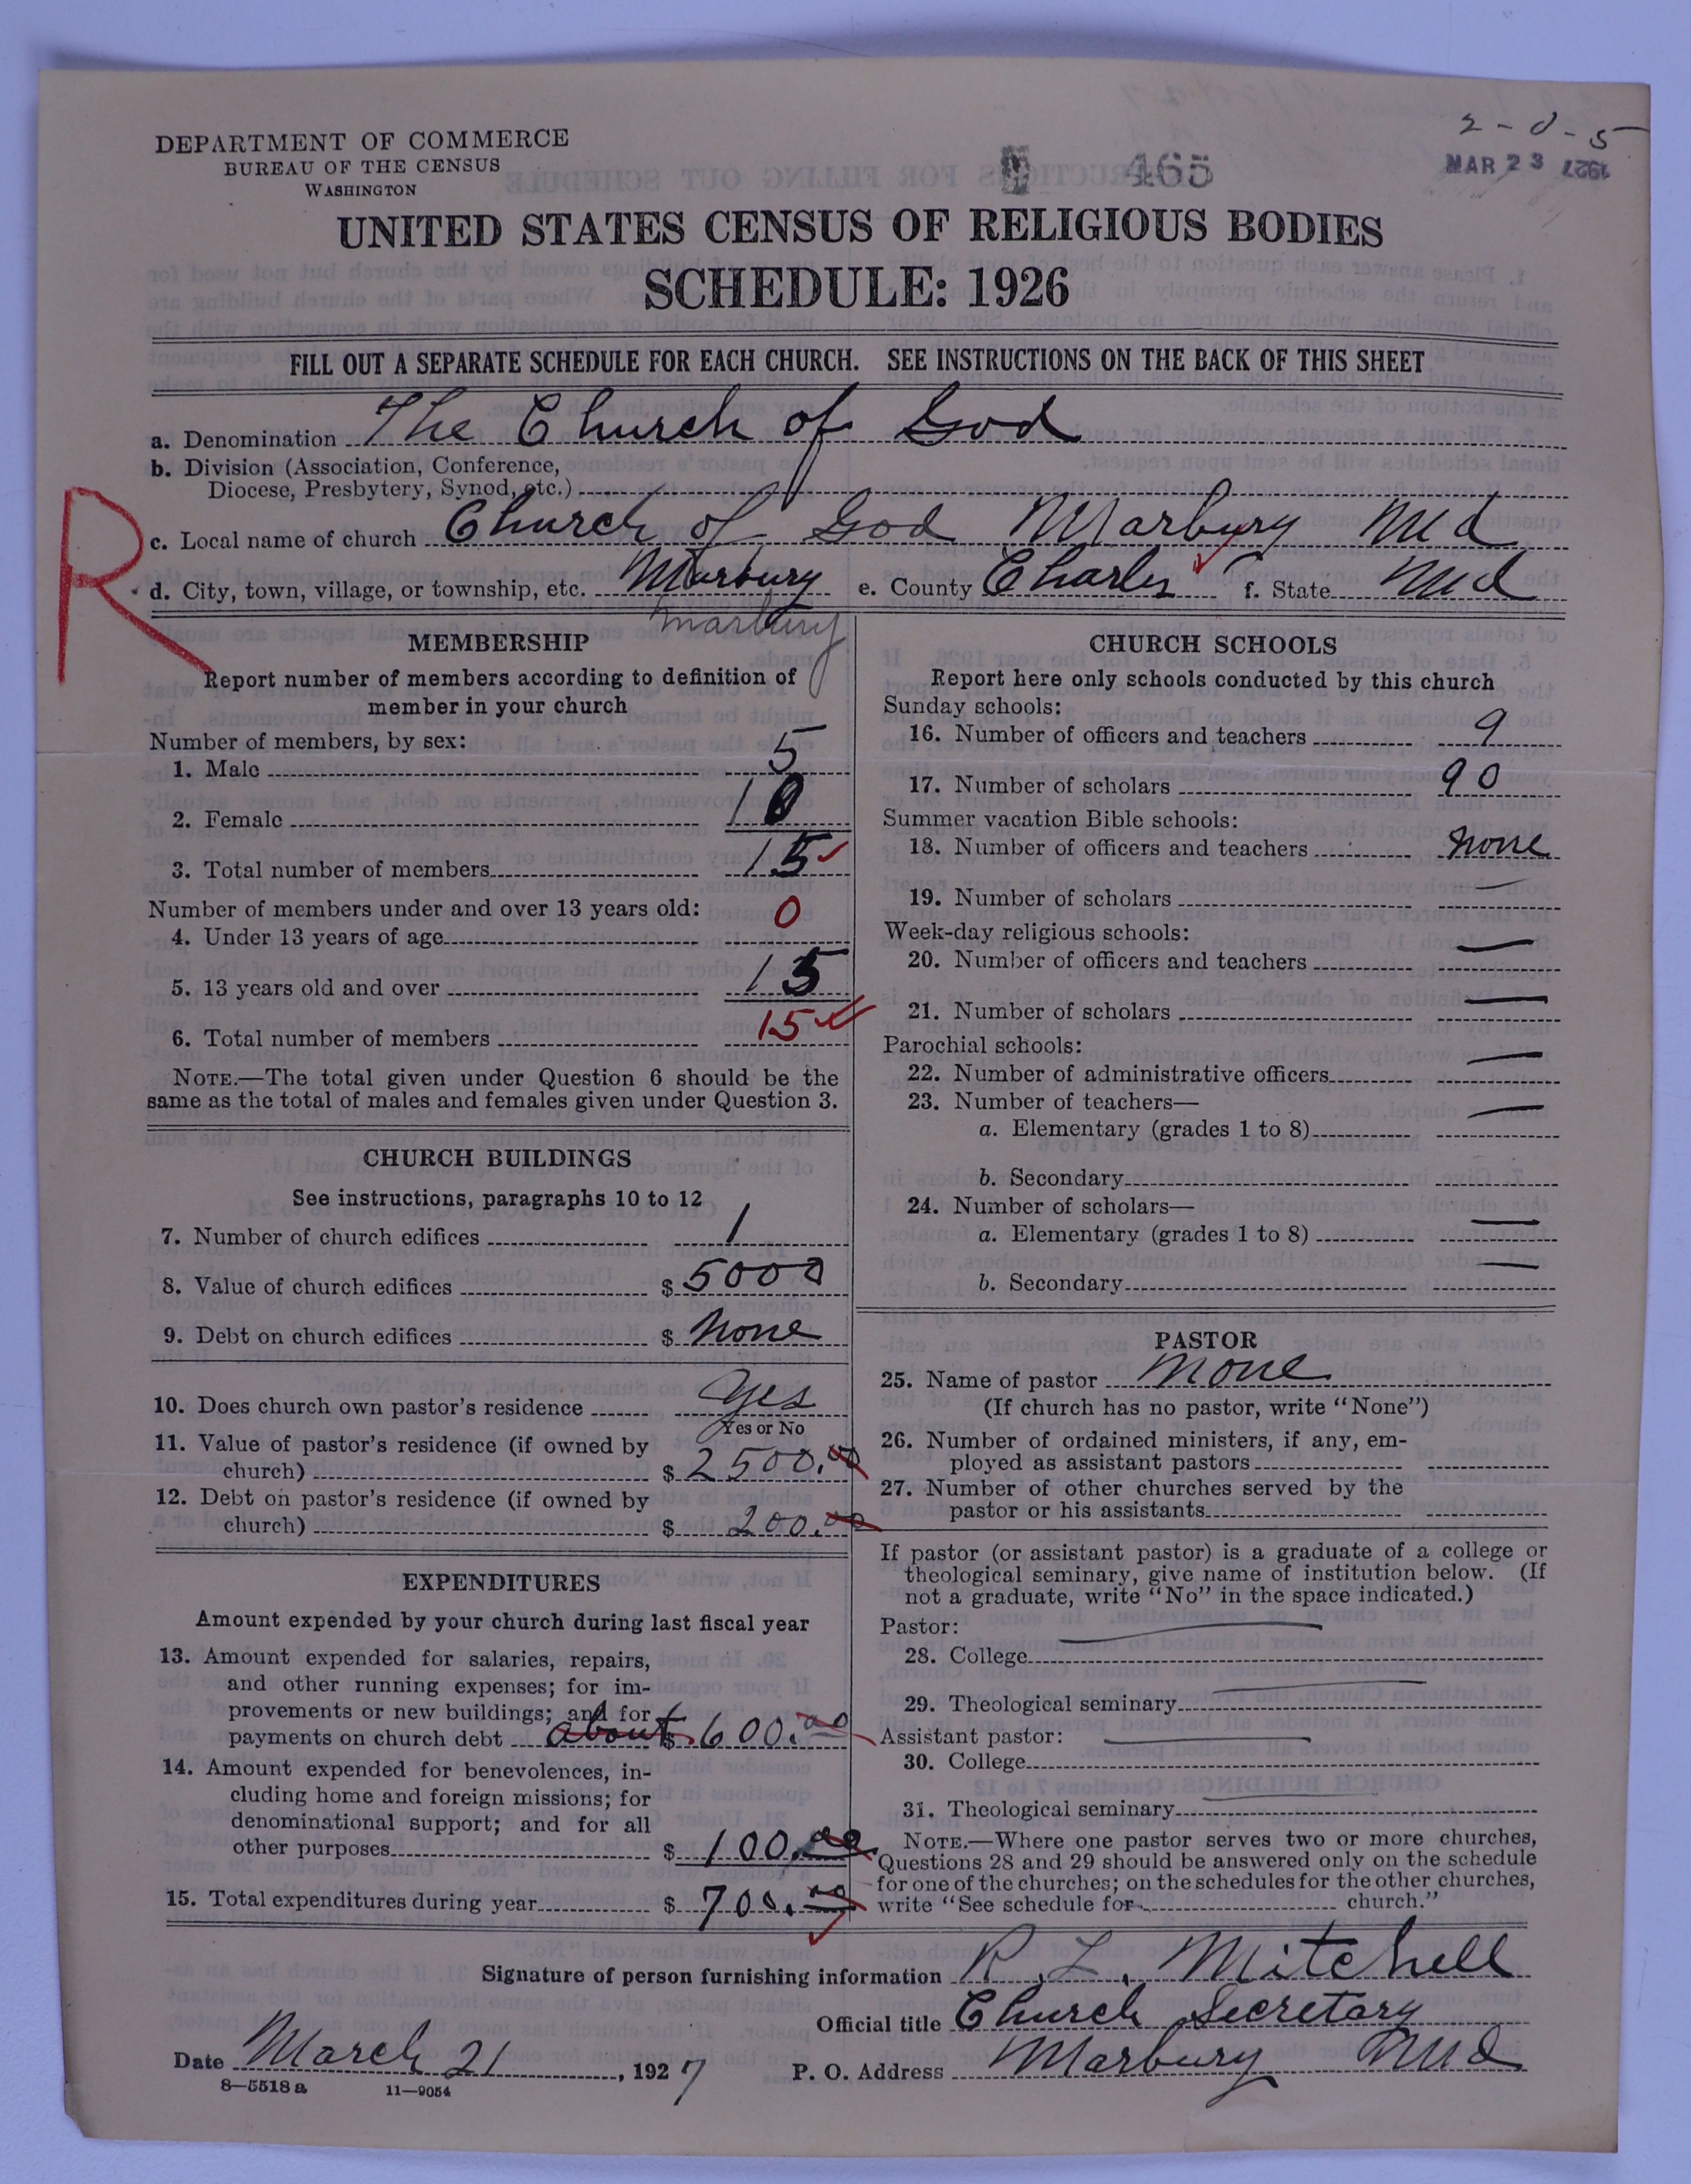 2-0-5
DEPARTMENT OF COMMERCE
BUREAU OF THE CENSUS
WASHINGTON
465
MAR 23 1927
UNITED STATES CENSUS OF RELIGIOUS BODIES
SCHEDULE: 1926
FILL OUT A SEPARATE SCHEDULE FOR EACH CHURCH. SEE INSTRUCTIONS ON THE BACK OF THIS SHEET
a. Denomination The Church of God
b. Division (Association, Conference,
Diocese, Presbytery, Synod, etc.)
R
c. Local name of church Church of God Marbury Md
d. City, town, village, or township, etc. Marbury e. County Charles f. State Md
Marbury
MEMBERSHIP
Report number of members according to definition of
member in your church
Number of members, by sex:
1. Male 5
2. Female 10
3. Total number of members 15
Number of members under and over 13 years old:
4. Under 13 years of age 0
5. 13 years old and over 15
6. Total number of members 15
NOTE.—The total given under Question 6 should be the
same as the total of males and females given under Question 3.
CHURCH BUILDINGS
See instructions, paragraphs 10 to 12
7. Number of church edifices 1
8. Value of church edifices $ 5000
9. Debt on church edifices $ None
10. Does church own pastor's residence yes
Yes or No
11. Value of pastor's residence (if owned by
church) $ 2500.00
12. Debt on pastor's residence (if owned by
church) $ 200.00
EXPENDITURES
Amount expended by your church during last fiscal year
13. Amount expended for salaries, repairs,
and other running expenses; for im-
provements or new buildings; and for
payments on church debt about $ 600.00
14. Amount expended for benevolences, in-
cluding home and foreign missions; for
denominational support; and for all
other purposes $ 100.00
15. Total expenditures during year $ 700.00
CHURCH SCHOOLS
Report here only schools conducted by this church
Sunday schools:
16. Number of officers and teachers 9
17. Number of scholars 90
Summer vacation Bible schools:
18. Number of officers and teachers none
19. Number of scholars —
Week-day religious schools:
20. Number of officers and teachers —
21. Number of scholars —
Parochial schools:
22. Number of administrative officers —
23. Number of teachers—
a. Elementary (grades 1 to 8) —
b. Secondary
24. Number of scholars—
a. Elementary (grades 1 to 8) —
b. Secondary —
PASTOR
25. Name of pastor None
(If church has no pastor, write "None")
26. Number of ordained ministers, if any, em-
ployed as assistant pastors
27. Number of other churches served by the
pastor or his assistants
If pastor (or assistant pastor) is a graduate of a college or
theological seminary, give name of institution below. (If
not a graduate, write "No" in the space indicated.)
Pastor:
28. College —
29. Theological seminary —
Assistant pastor:
30. College —
31. Theological seminary —
NOTE.—Where one pastor serves two or more churches,
Questions 28 and 29 should be answered only on the schedule
for one of the churches; on the schedules for the other churches,
write "See schedule for church."
Signature of person furnishing information R. L. Mitchell
Official title Church Secretary
Date March 21, 1927 P. O. Address Marbury Md
8—5518 a 11—9054